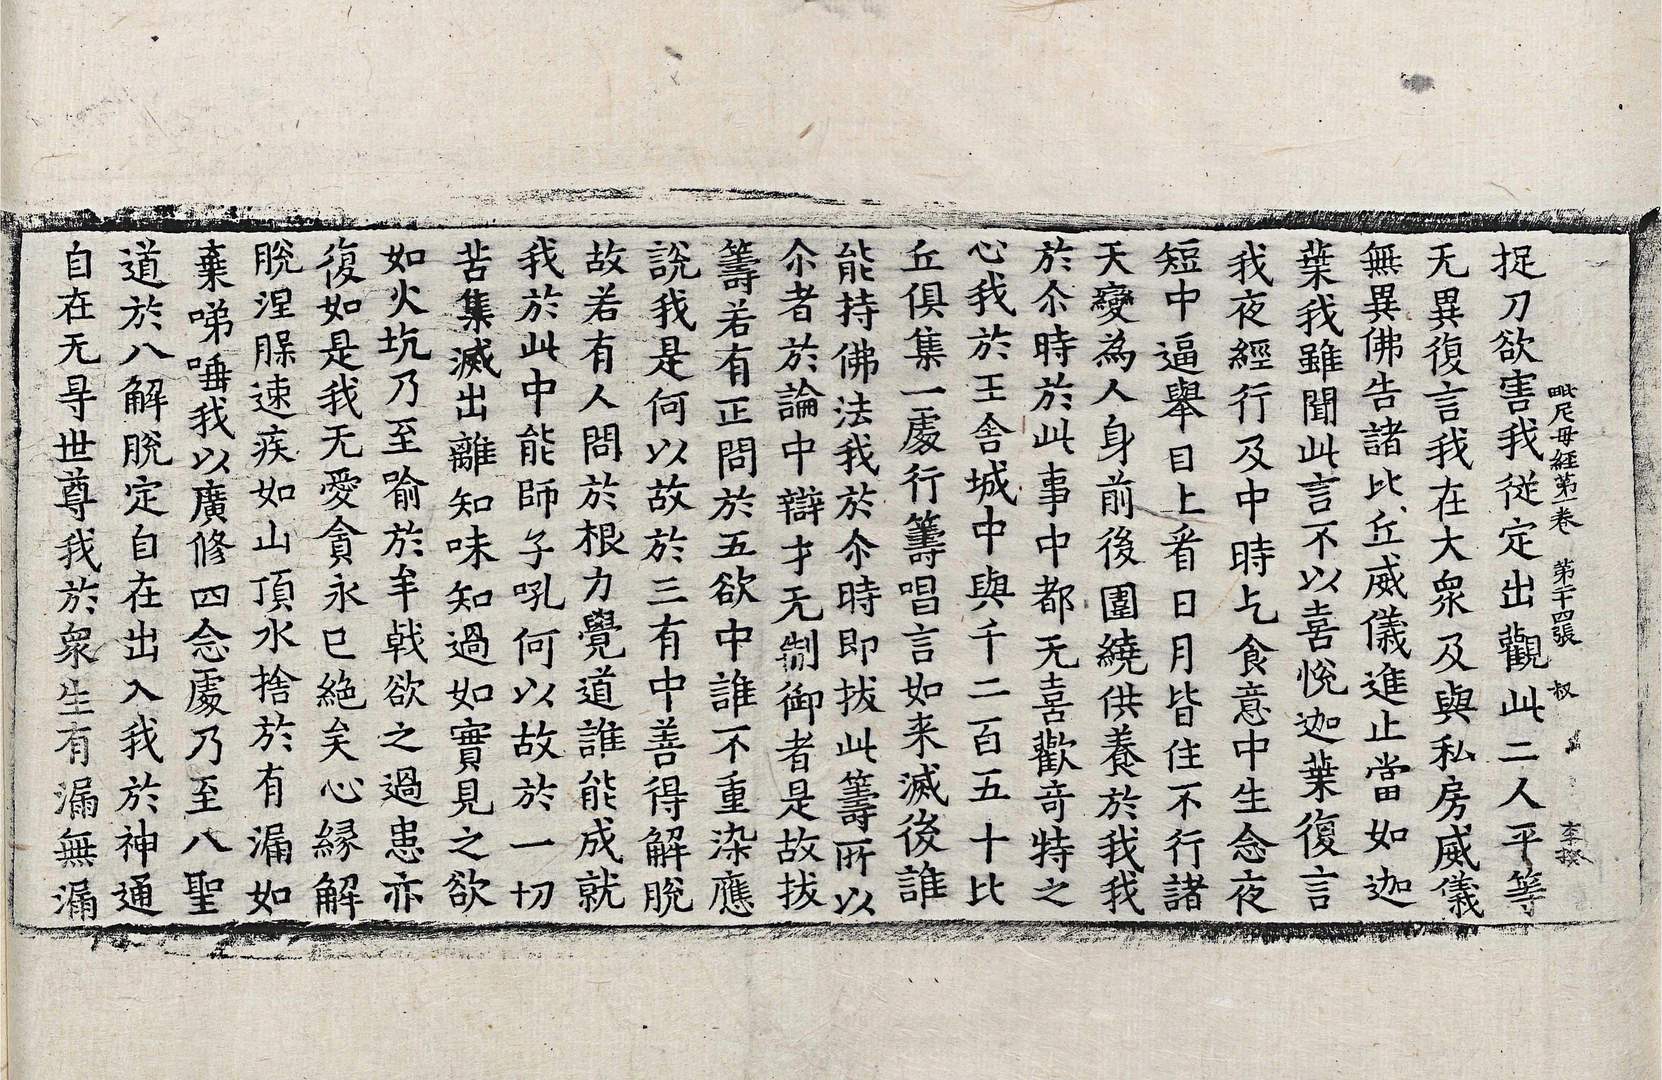 毗尼母経第一卷 第二十四張 叔
捉刀欲害我従定出觀此二人平等
无異復言我在大衆及與私房威儀
無異佛告諸比丘威儀進止當如迦
葉我雖聞此言不以喜悅迦葉復言
我夜經行及中時乞食意中生念夜
短中逼舉目上看日月皆住不行諸
天變為人身前後圍繞供養於我我
於尒時於此事中都无喜歡竒特之
心我於王舎城中與千二百五十比
丘俱集一處行籌唱言如来滅後誰
能持佛法我於尒時即拔此籌所以
尒者於論中辯才无制御者是故拔
籌若有正問於五欲中誰不重染應
說我是何以故於三有中善得解脫
故若有人問於根力覺道誰能成就
我於此中能師子吼何以故於一切
苦集滅出離知味知過如實見之欲
如火坑乃至喻於牟戟欲之過患亦
復如是我无愛貪永已絕矣心縁解
脫涅䐗速疾如山頂水捨於有漏如
棄唾我以廣修四念處乃至八聖
道於八解脫定自在出入我於神通
自在无㝵世尊我於衆生有漏無漏